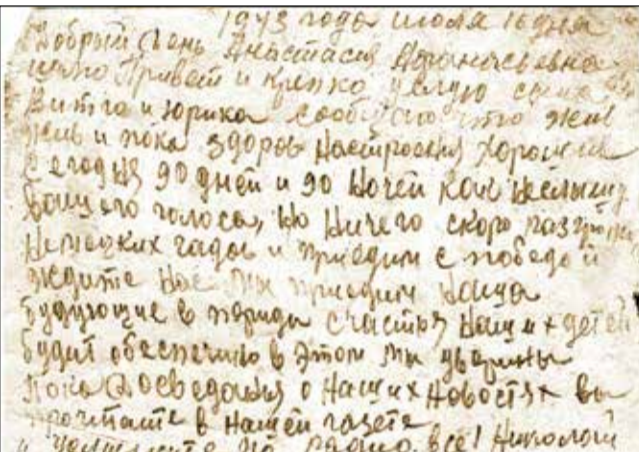 1943 года июля 16 дня
Добрый день Анастасия Афанасьевна
шлю Привет и крепко целую сына
Витю и Юрика сообщаю что жив
жив и пока здоров настроения хорошие
сегодня 90 дней и 90 ночей как неслышу
вашего голоса, но ничего скоро разгромим
немецких гадов и приедим с победой
ждите нас мы приедим наша
будующие в переди счастья наших детей
будит обеспечино в этом мы уверины
пока досведания о наших новостях вы
прочитаите в нашей газете
и услышите по радио. все! Николай